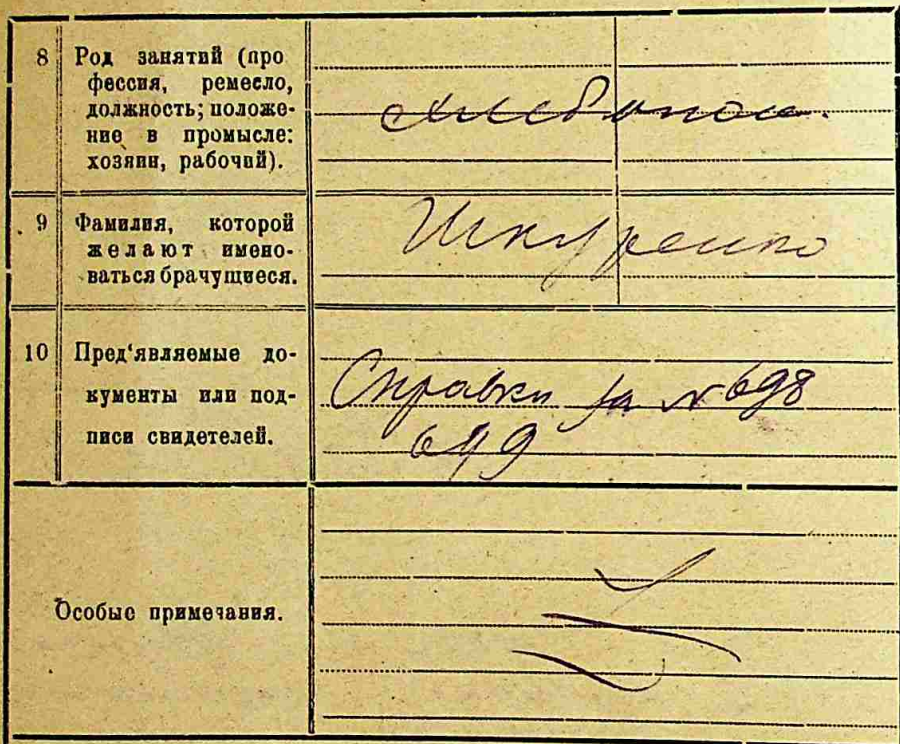 8 Род занятий (про
фессия, ремесло,
должность; положе-
ние в промысле:
хозяин, рабочий).
хлебопаш.
9 Фамилия, которой
желают имено-
ваться брачущиеся.
Шкуренко
10 Пред'являемые до-
кументы или под-
писи свидетелей.
Справки за № 698
699
Особые примечания.